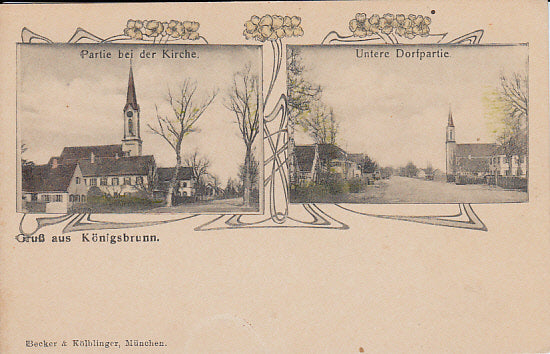 Partie bei der Kirche.
Untere Dorfpartie.
Gruß aus Königsbrunn.
Becker & Kölblinger, München.